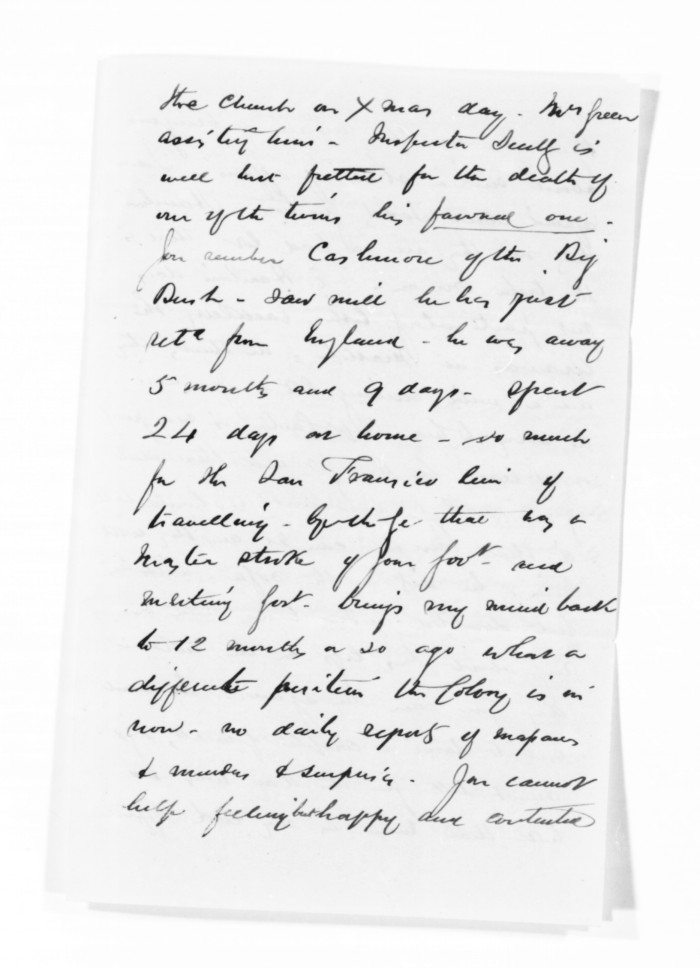 the Church on Xmas day. Mrs Green
assisting him - Inspector Scully is
well but fretted for the death of
one of the twins his favored one.
You remember Cashmore of the Big
Bush - Saw mill he has just
retd from England - he was away
5 months and 9 days - spent
24 days at home - so much
for the San Francisco line of
travelling - By the bye that was a
Master stroke of your Govt - and
meeting brings my mind back
to 12 months or so ago what a
different position the Colony is in
now - no daily reports of
& murders & surprises. You cannot
help feeling but happy and contented